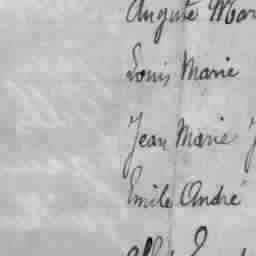 Auguste Mar
Louis Marie
Jean Marie J
Emile André